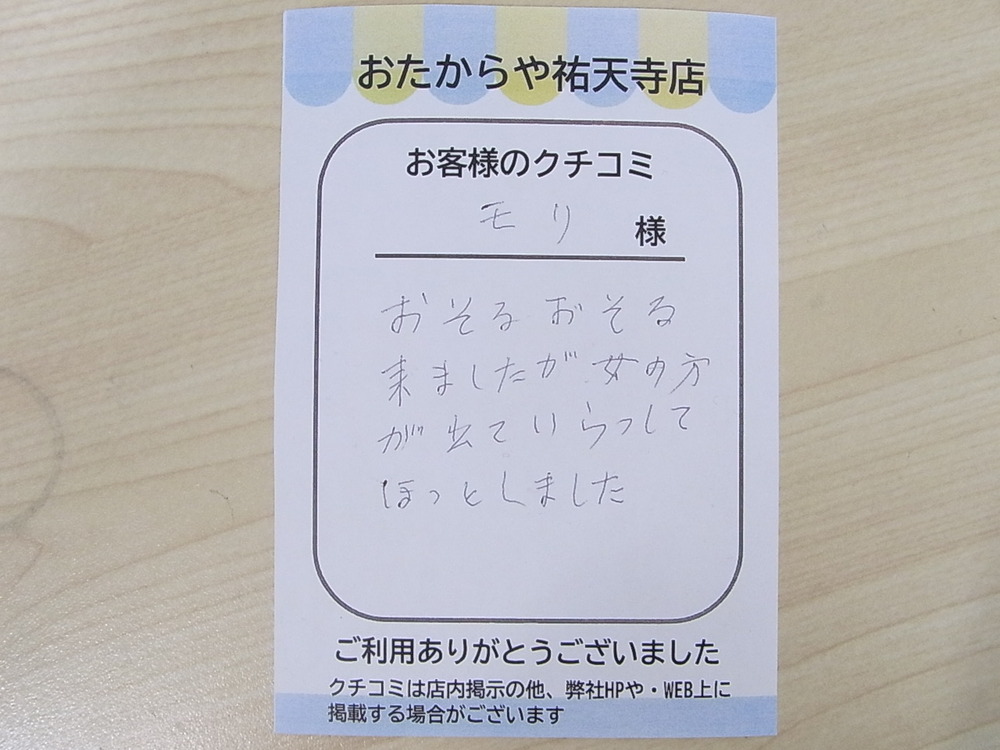 おたからや祐天寺店
お客様のクチコミ
モリ 様
おそるおそる
来ましたが女の方
が出ていらっして
ほっとしました
ご利用ありがとうございました
クチコミは店内掲示の他、弊社HPや・WEB上に
掲載する場合がございます